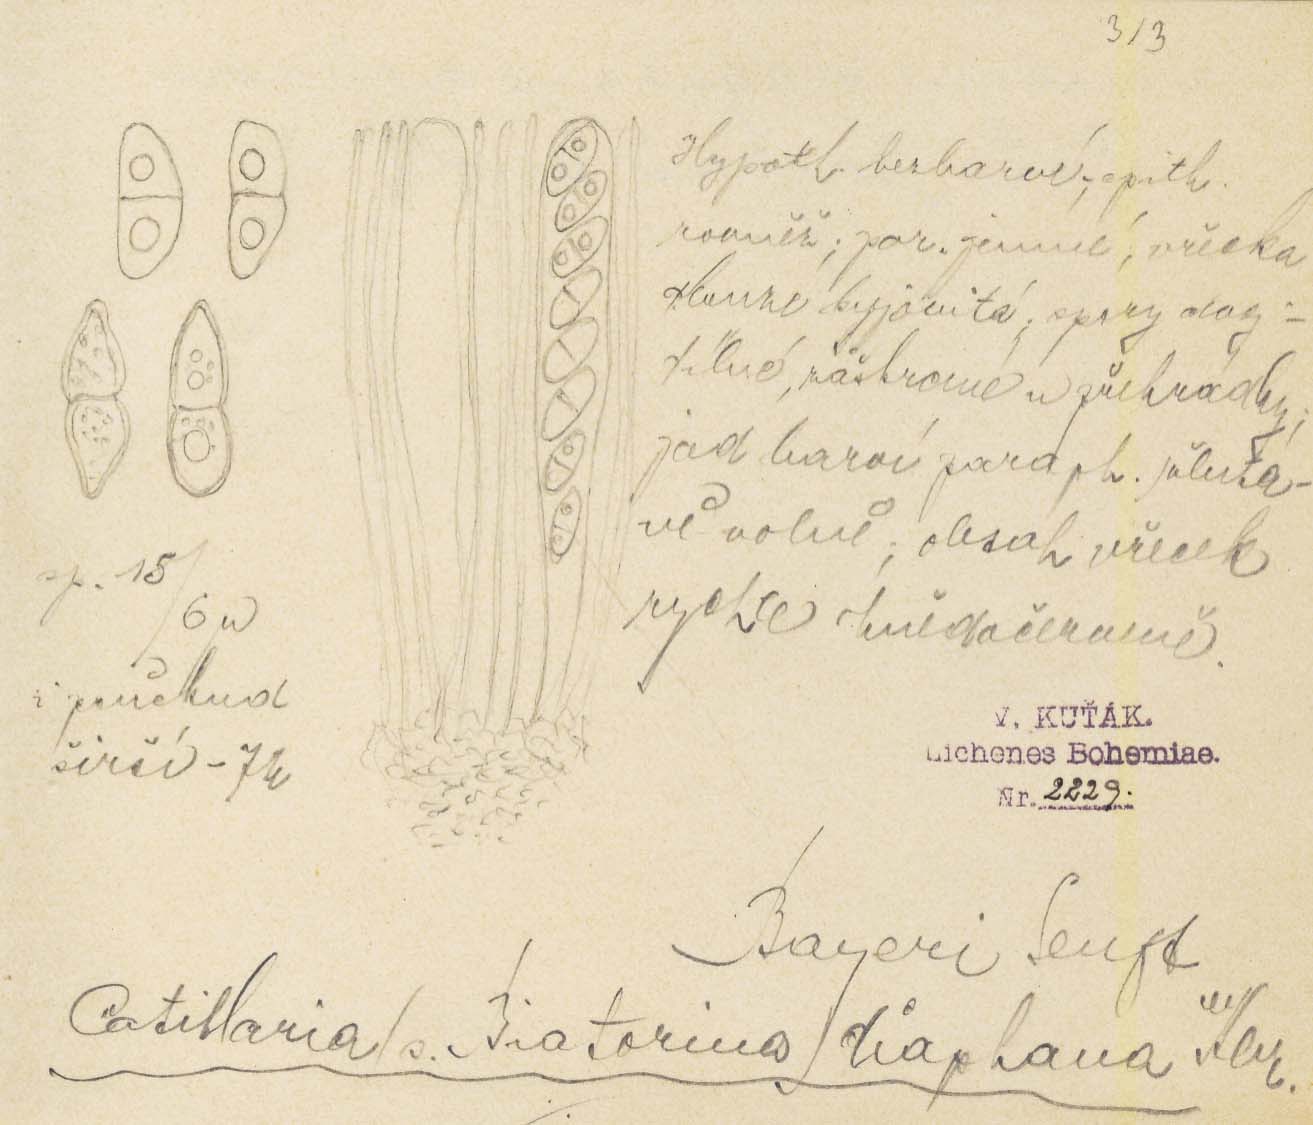 313
Hypoth. bezbarvé, epith.
rovněž; par. jemné, vřecka
dlouze kyjovitá, spory dag-
tilné, zaškrcené u přehrádky,
jod barví paraph. žluta-
vě volně, obsah vřecek
rychle hnědočerveně.
sp. 15/6 μ
i poněkud
širší - 7 μ
V. KUŤÁK.
Lichenes Bohemiae.
Nr. 2229.
Bayeri Senft
Catillaria (s. Biatorina) diaphana